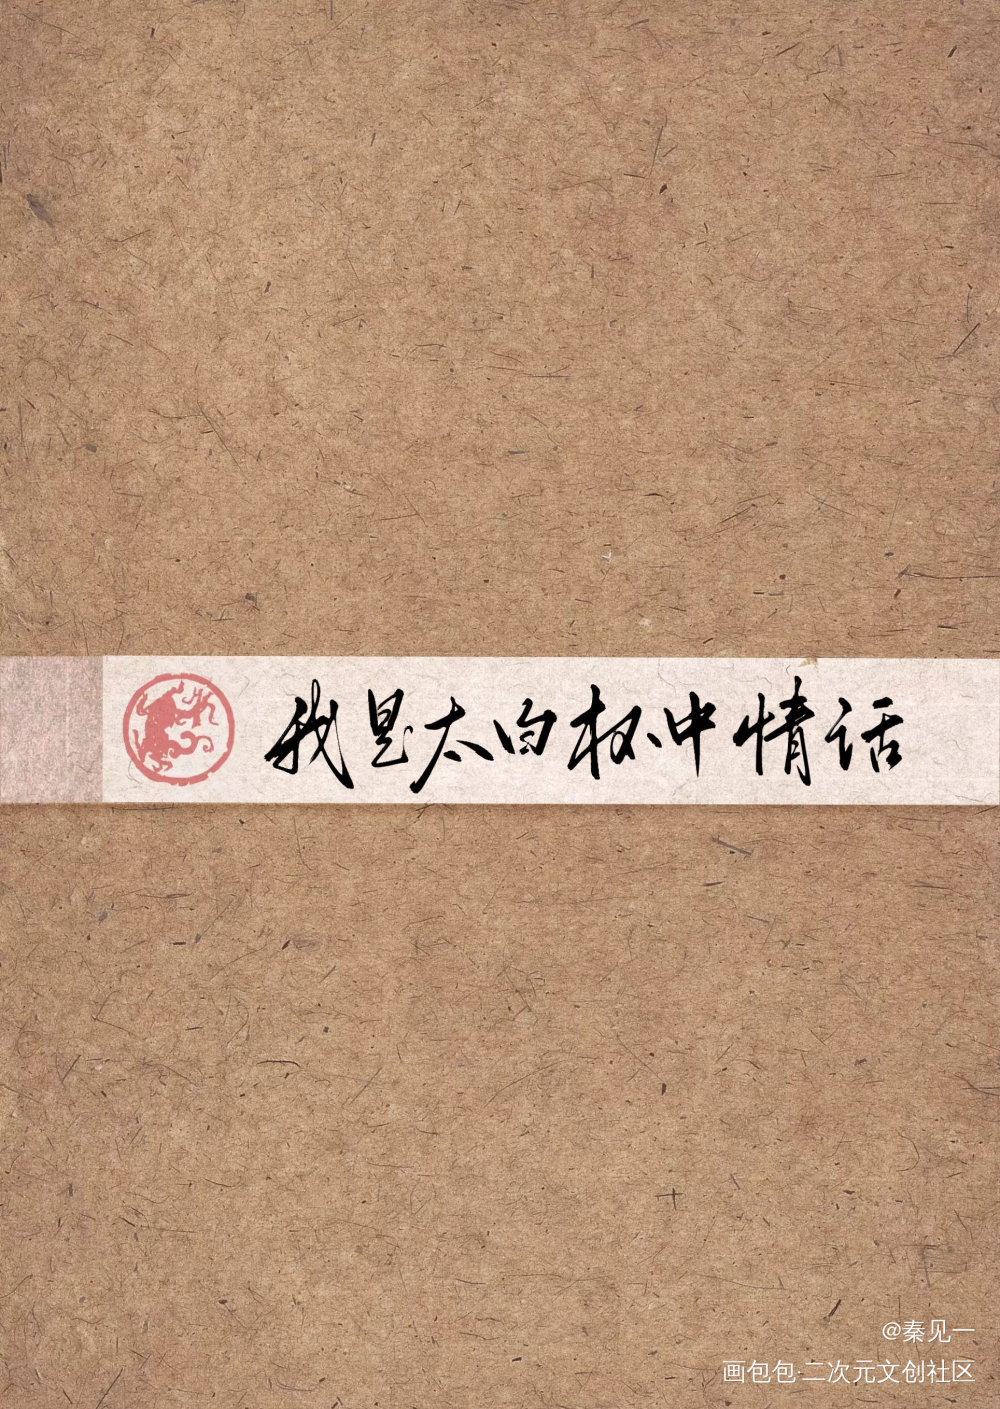 我是太白杯中情话
@秦见一
画包包·二次元文创社区